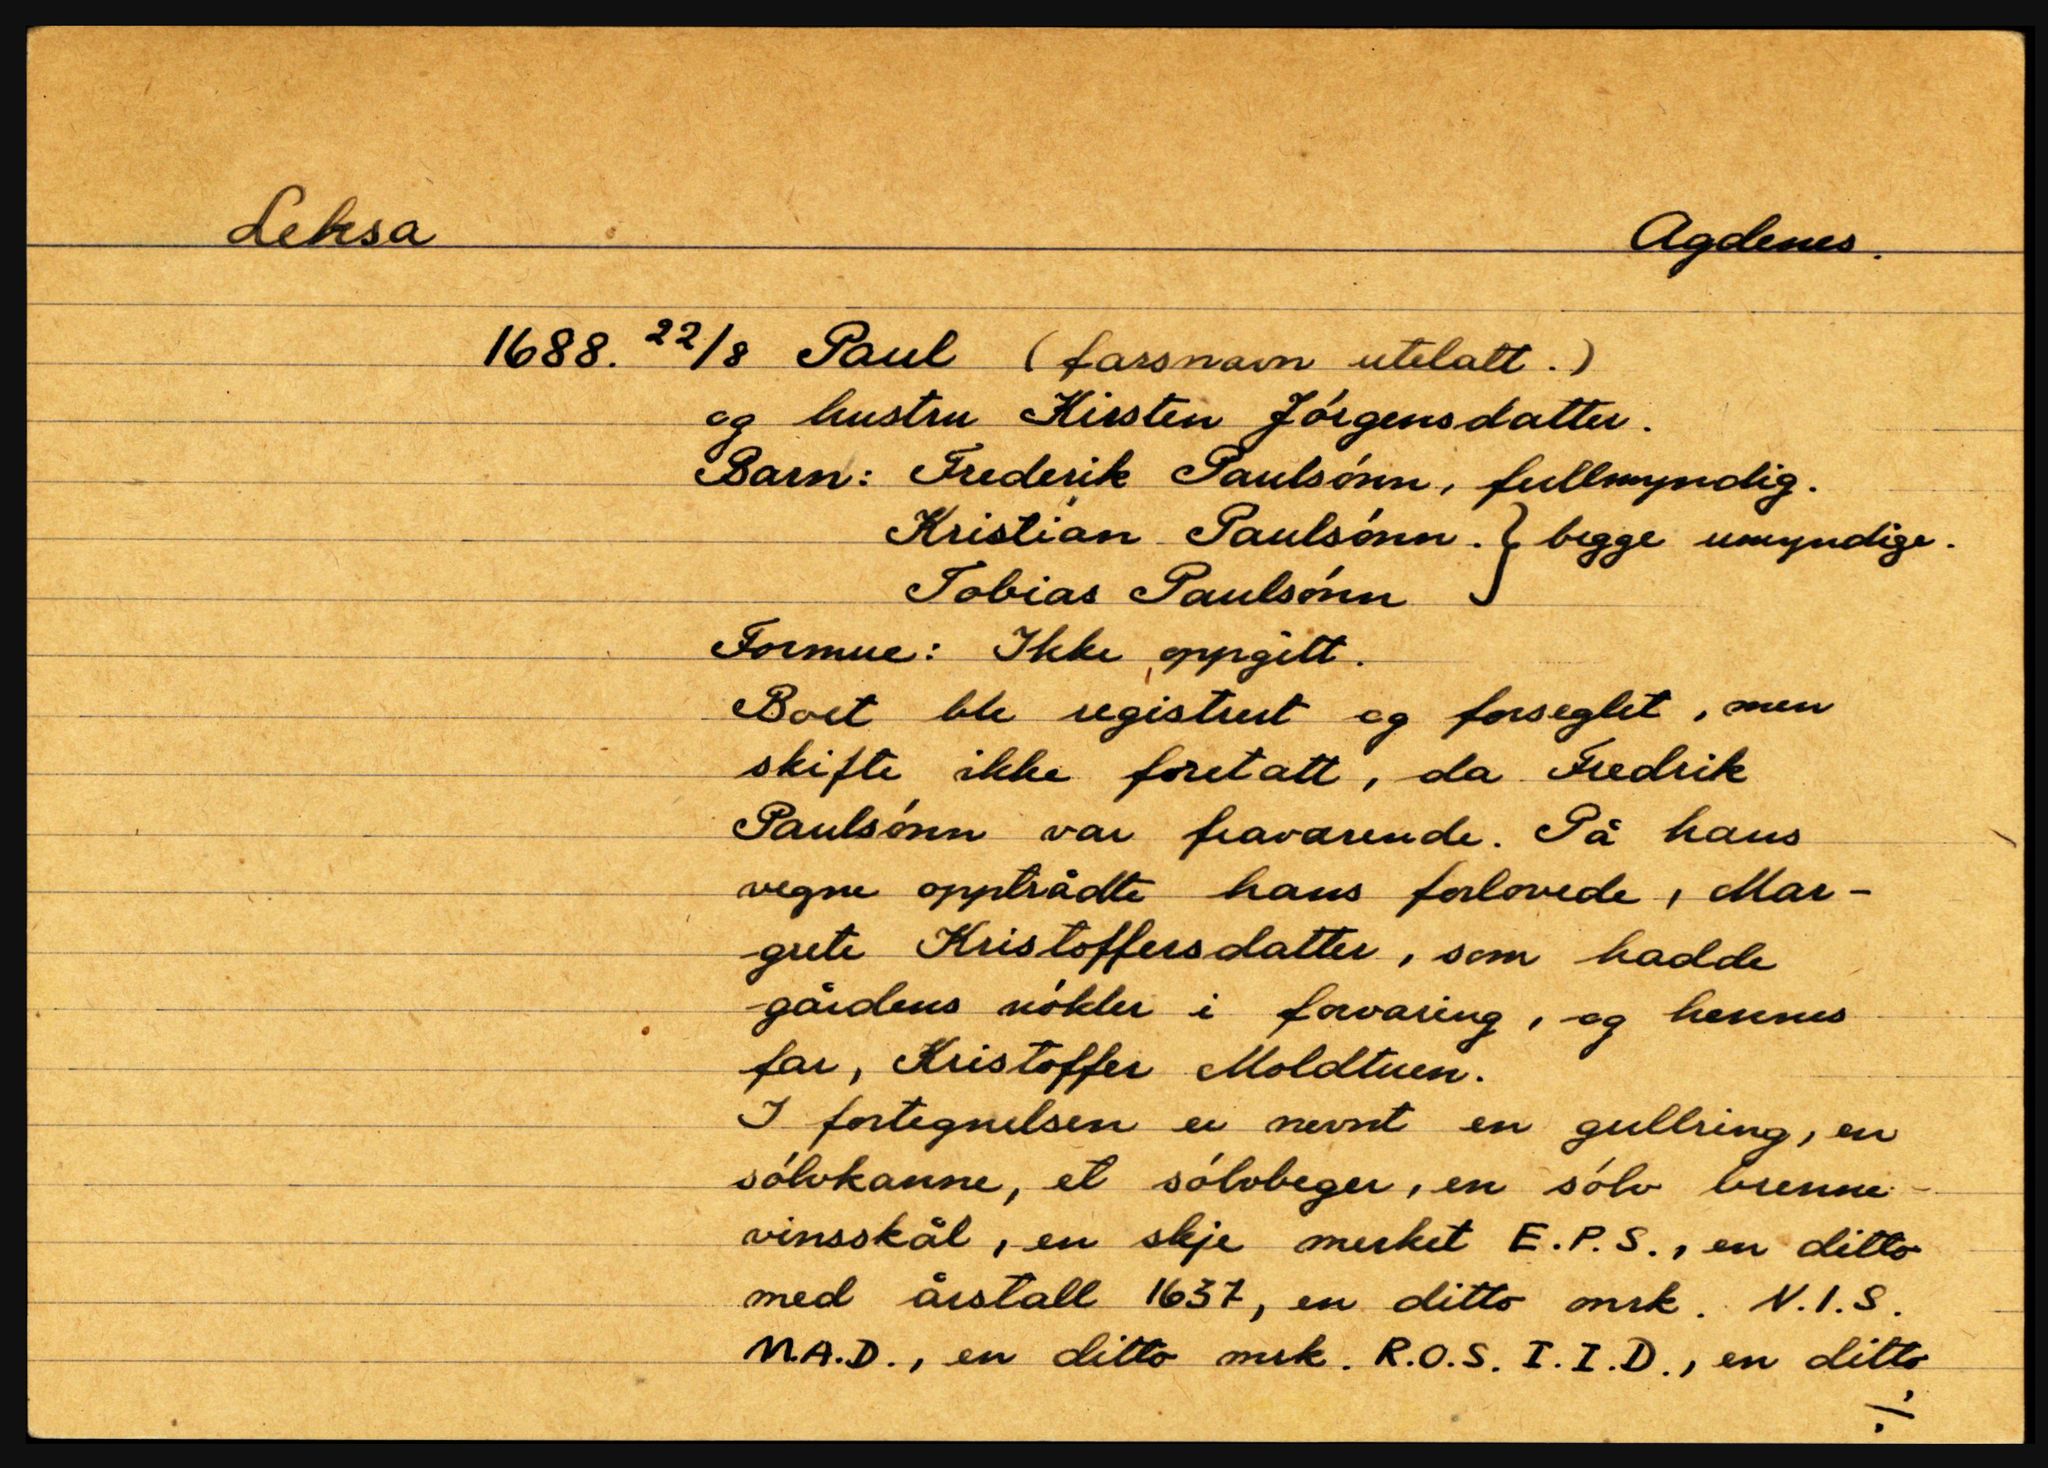 Leksa Agdenes.
1688. 22/8 Paul (farsnavn utelatt.)
og hustru Kirsten Jórgensdatter.
Barn: Frederik Paulsónn, fullmyndig.
Kristian Paulsónn. } begge umyndige.
Tobias Paulsónn
Formue: Ikke oppgitt.
Boet ble registrert og forseglet, men
skifte ikke foretatt, da Fredrik
Paulsónn var fraværende. På hans
vegne opptrådte hans forlovede, Mar-
grete Kristoffersdatter, som hadde
gårdens nókler i forvaring, og hennes
far, Kristoffer Moldtuen.
I fortegnelsen er nevnt en gullring, en
sólvkanne, et sólvbeger, en sólv brenne-
vinsskål, en skje merket E.P.S., en ditto
med årstall 1637, en ditto mrk. N.I.S.
M.A.D., en ditto mrk. R.O.S. I.I.D., en ditto
÷